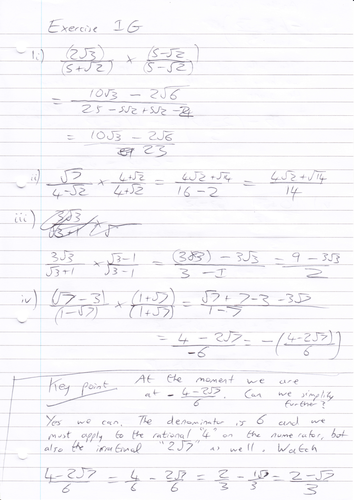 Exercise 1G
1.i) (2√3)/(5+√2) × (5-√2)/(5-√2)
= (10√3 - 2√6)/(25 - 5√2 + 5√2 - 2)
= (10√3 - 2√6)/23
ii) √7/(4-√2) × (4+√2)/(4+√2) = (4√2 + √14)/(16-2) = (4√2 + √14)/14
iii) 3√3/(√3+1) ×
3√3/(√3+1) × (√3-1)/(√3-1) = ((3×3) - 3√3)/(3-1) = (9 - 3√3)/2
iv) (√7-3)/(1-√7) × (1+√7)/(1+√7) = (√7 + 7 - 3 - 3√7)/(1-7)
= (4 - 2√7)/-6 = -((4-2√7)/6)
Key point At the moment we are
at - (4-2√7)/6. Can we simplify
further?
Yes we can. The denominator is 6 and we
must apply to the rational "4" on the numerator, but
also the irrational "2√7" as well. Watch
(4-2√7)/6 = 4/6 - 2√7/6 = 2/3 - 1√7/3 = (2-√7)/3